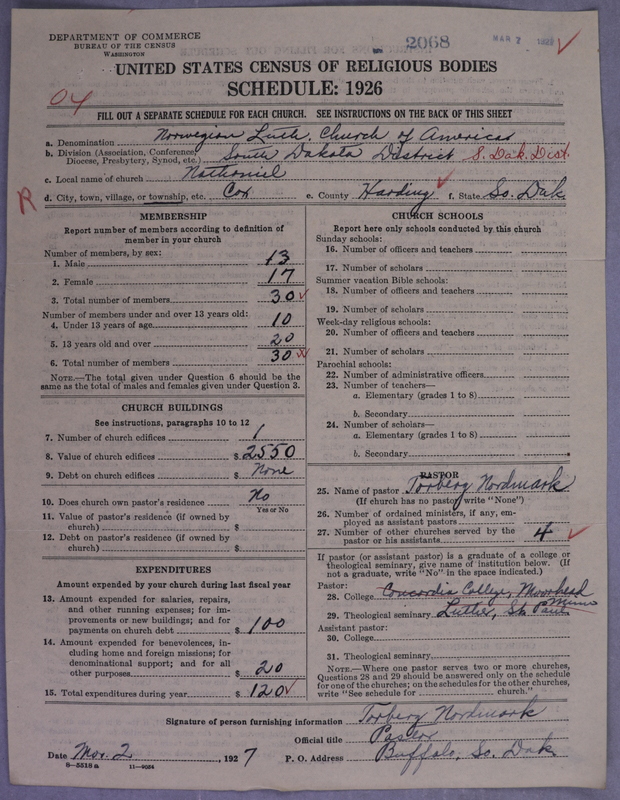 DEPARTMENT OF COMMERCE
BUREAU OF THE CENSUS
WASHINGTON
2068
MAR 7 1927
UNITED STATES CENSUS OF RELIGIOUS BODIES
SCHEDULE: 1926
04
FILL OUT A SEPARATE SCHEDULE FOR EACH CHURCH. SEE INSTRUCTIONS ON THE BACK OF THIS SHEET
a. Denomination Norwegian Luth. Church of America
b. Division (Association, Conference, Diocese, Presbytery, Synod, etc.) South Dakota District S. Dak. Dist.
c. Local name of church Nathaniel
R
d. City, town, village, or township, etc. Cox e. County Harding f. State So. Dak
MEMBERSHIP
Report number of members according to definition of
member in your church
Number of members, by sex:
1. Male 13
2. Female 17
3. Total number of members 30
Number of members under and over 13 years old:
4. Under 13 years of age 10
5. 13 years old and over 20
6. Total number of members 30
NOTE.—The total given under Question 6 should be the
same as the total of males and females given under Question 3.
CHURCH BUILDINGS
See instructions, paragraphs 10 to 12
7. Number of church edifices 1
8. Value of church edifices $ 2550
9. Debt on church edifices $ None
10. Does church own pastor's residence No
Yes or No
11. Value of pastor's residence (if owned by
church) $
12. Debt on pastor's residence (if owned by
church) $
EXPENDITURES
Amount expended by your church during last fiscal year
13. Amount expended for salaries, repairs,
and other running expenses; for im-
provements or new buildings; and for
payments on church debt $ 100
14. Amount expended for benevolences, in-
cluding home and foreign missions; for
denominational support; and for all
other purposes $ 20
15. Total expenditures during year $ 120
CHURCH SCHOOLS
Report here only schools conducted by this church
Sunday schools:
16. Number of officers and teachers
17. Number of scholars
Summer vacation Bible schools:
18. Number of officers and teachers
19. Number of scholars
Week-day religious schools:
20. Number of officers and teachers
21. Number of scholars
Parochial schools:
22. Number of administrative officers
23. Number of teachers—
a. Elementary (grades 1 to 8)
b. Secondary
24. Number of scholars—
a. Elementary (grades 1 to 8)
b. Secondary
PASTOR
25. Name of pastor Torberg Nordmark
(If church has no pastor, write "None")
26. Number of ordained ministers, if any, em-
ployed as assistant pastors
27. Number of other churches served by the
pastor or his assistants 4
If pastor (or assistant pastor) is a graduate of a college or
theological seminary, give name of institution below. (If
not a graduate, write "No" in the space indicated.)
Pastor:
28. College Concordia College, Moorhead Minn
29. Theological seminary Luther, St. Paul
Assistant pastor:
30. College
31. Theological seminary
NOTE.—Where one pastor serves two or more churches,
Questions 28 and 29 should be answered only on the schedule
for one of the churches; on the schedules for the other churches,
write "See schedule for church."
Signature of person furnishing information Torberg Nordmark
Official title Pastor
Date Mar. 2, 1927 P. O. Address Buffalo, So. Dak
8—5518 a 11—9034